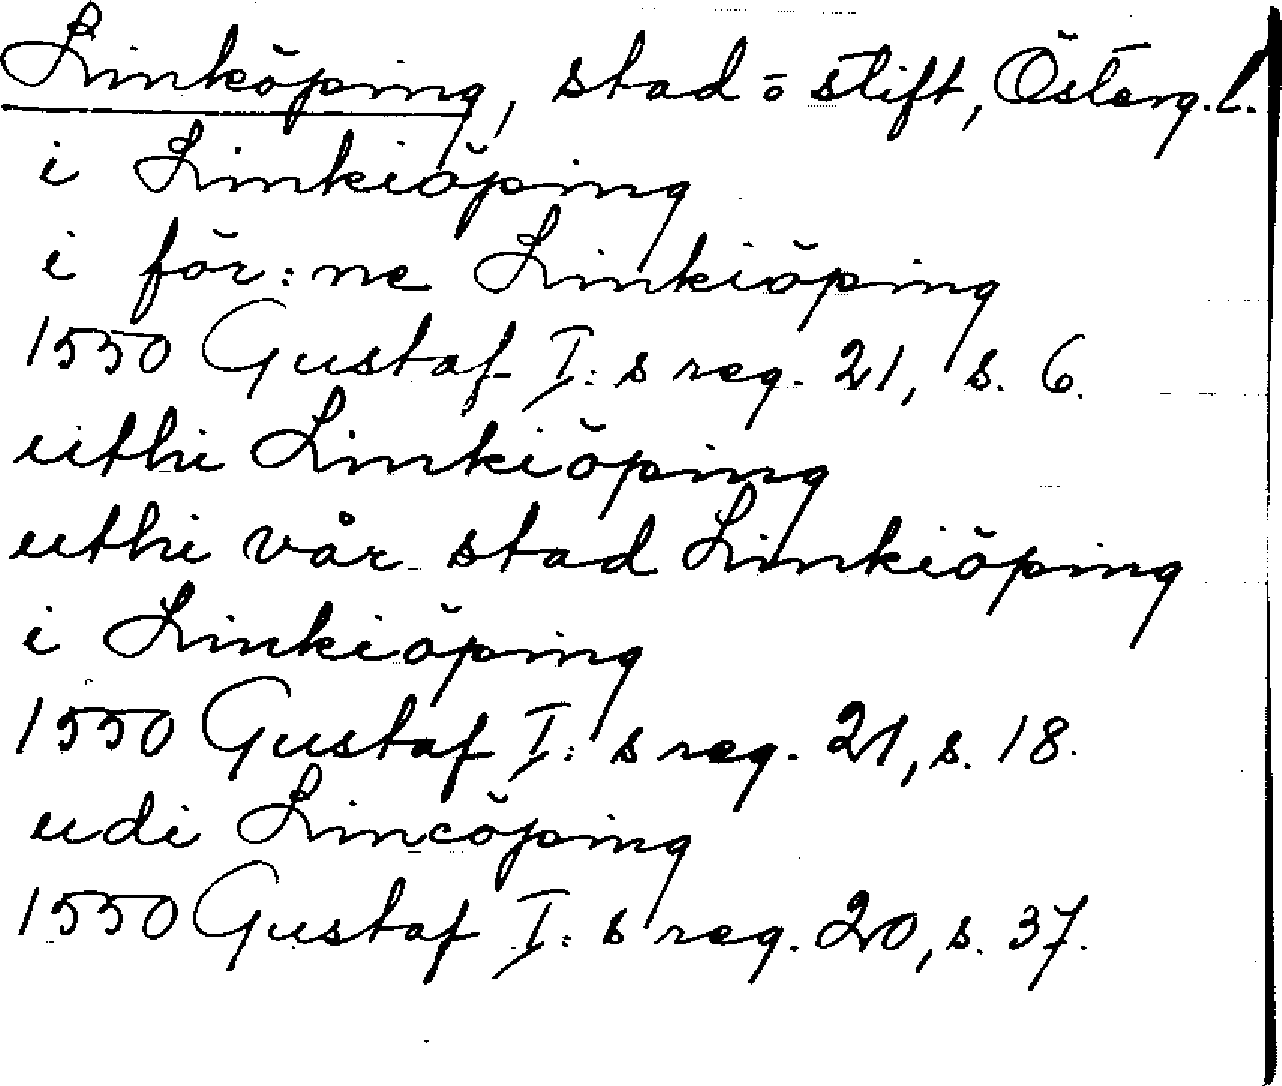 Linköping, stad o stift, Österg.l.
i Linkiöping
i för:ne Linkiöping
1550 Gustaf I:s reg. 21, s. 6.
uthi Linkiöping
uthi vår stad Linkiöping
i Linkiöping
1550 Gustaf I:s reg. 21, s. 18.
udi Lincöping
1550 Gustaf I:s reg. 20, s. 37.